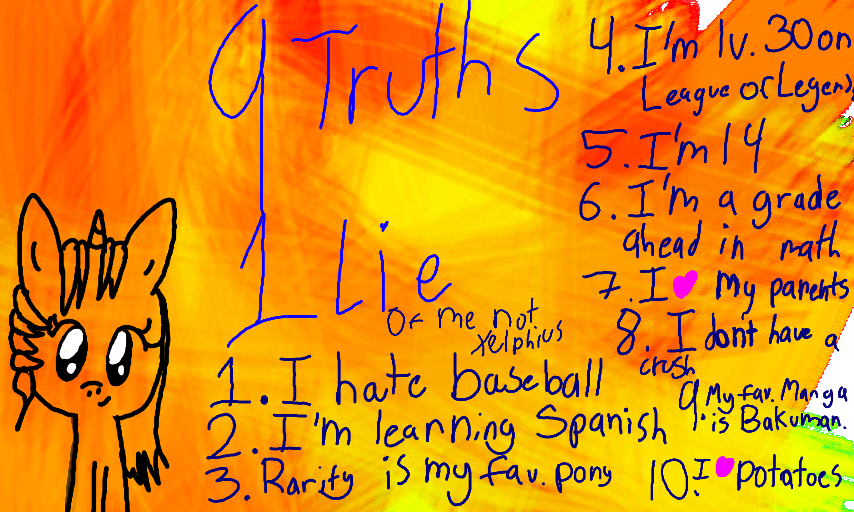 9 Truths
1 Lie
Of me not
Xelphius
1. I hate baseball
2. I'm learning Spanish
3. Rarity is my fav. pony
4. I'm lv. 30 on
League of Legends
5. I'm 14
6. I'm a grade
ahead in math
7. I ♥ my parents
8. I dont have a
crush
9. My fav. Manga
is Bakuman.
10. I ♥ potatoes